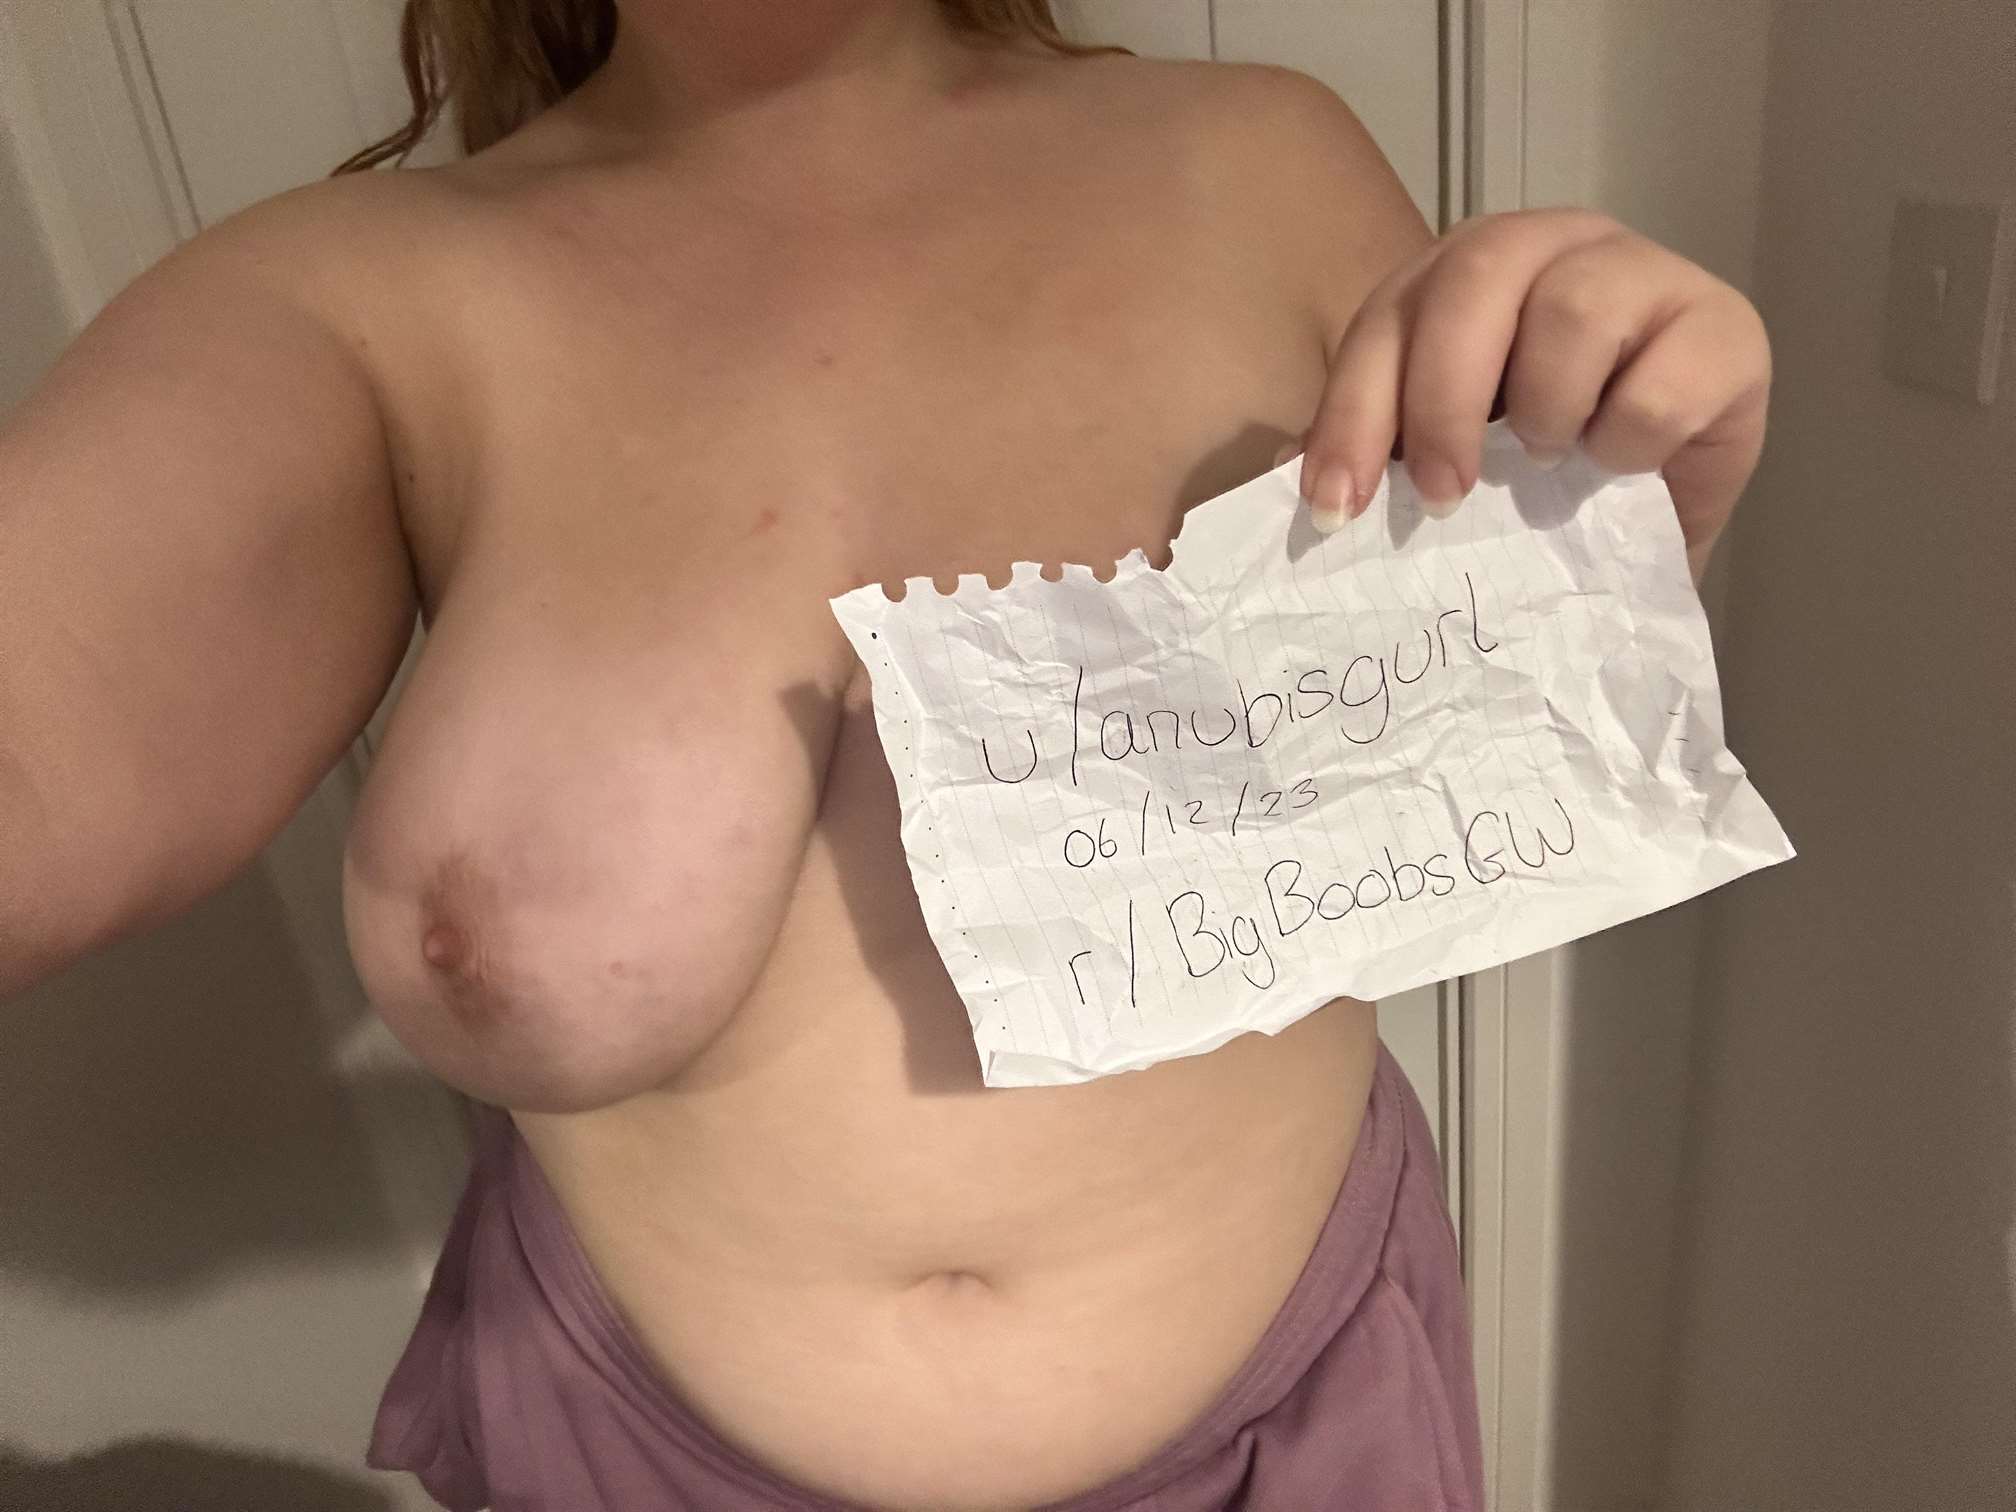 u/anubisgurl
06/12/23
r/BigBoobsGW